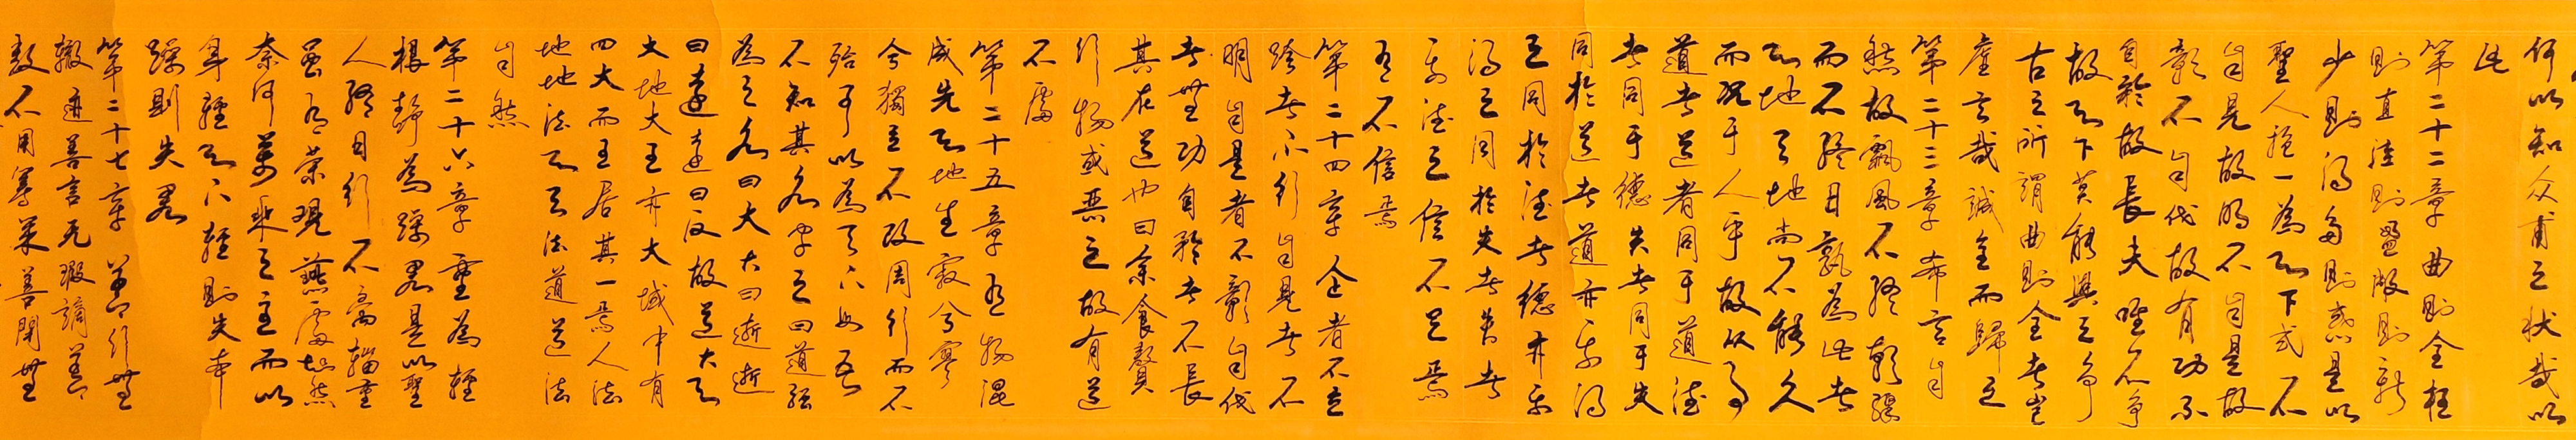 何以知众甫之状哉以
此
第二十二章 曲則全枉
則直洼則盈敝則新
少則得多則惑是以
聖人抱一為天下式不
自見故明不自是故
彰不自伐故有功不
自矜故長夫唯不争
故天下莫能與之争
古之所謂曲則全者豈
虚言哉誠全而歸之
第二十三章 希言自
然故飄風不终朝驟
而不終日孰為此者
天地天地尚不能久
而况于人乎故从事
道者道者同于道德
者同于德失者同于失
同於道者道亦乐得
之同於德者德亦乐
得之同於失者失者
亦乐德之信不足焉
有不信焉
第二十四章 企者不立
跨者不行自見者不
明自是者不彰自伐
者無功自矜者不長
其在道也曰余食贅
行物或恶之故有道
不處
第二十五章 有物混
成先天地生寂兮寥
兮獨立不改周行而不
殆可以為天下母吾
不知其名字之曰道强
為之名曰大大曰逝逝
曰遠遠曰反故道大天
大地大王亦大域中有
四大而王居其一焉人法
地地法天天法道道法
自然
第二十六章 重為輕
根静為躁君是以聖
人终日行不离輜重
虽有荣观燕處超然
奈何萬乘之主而以
身輕天下輕則失本
躁則失君
第二十七章 善行無
辙迹善言无瑕謫善
数不用筹策善閉無